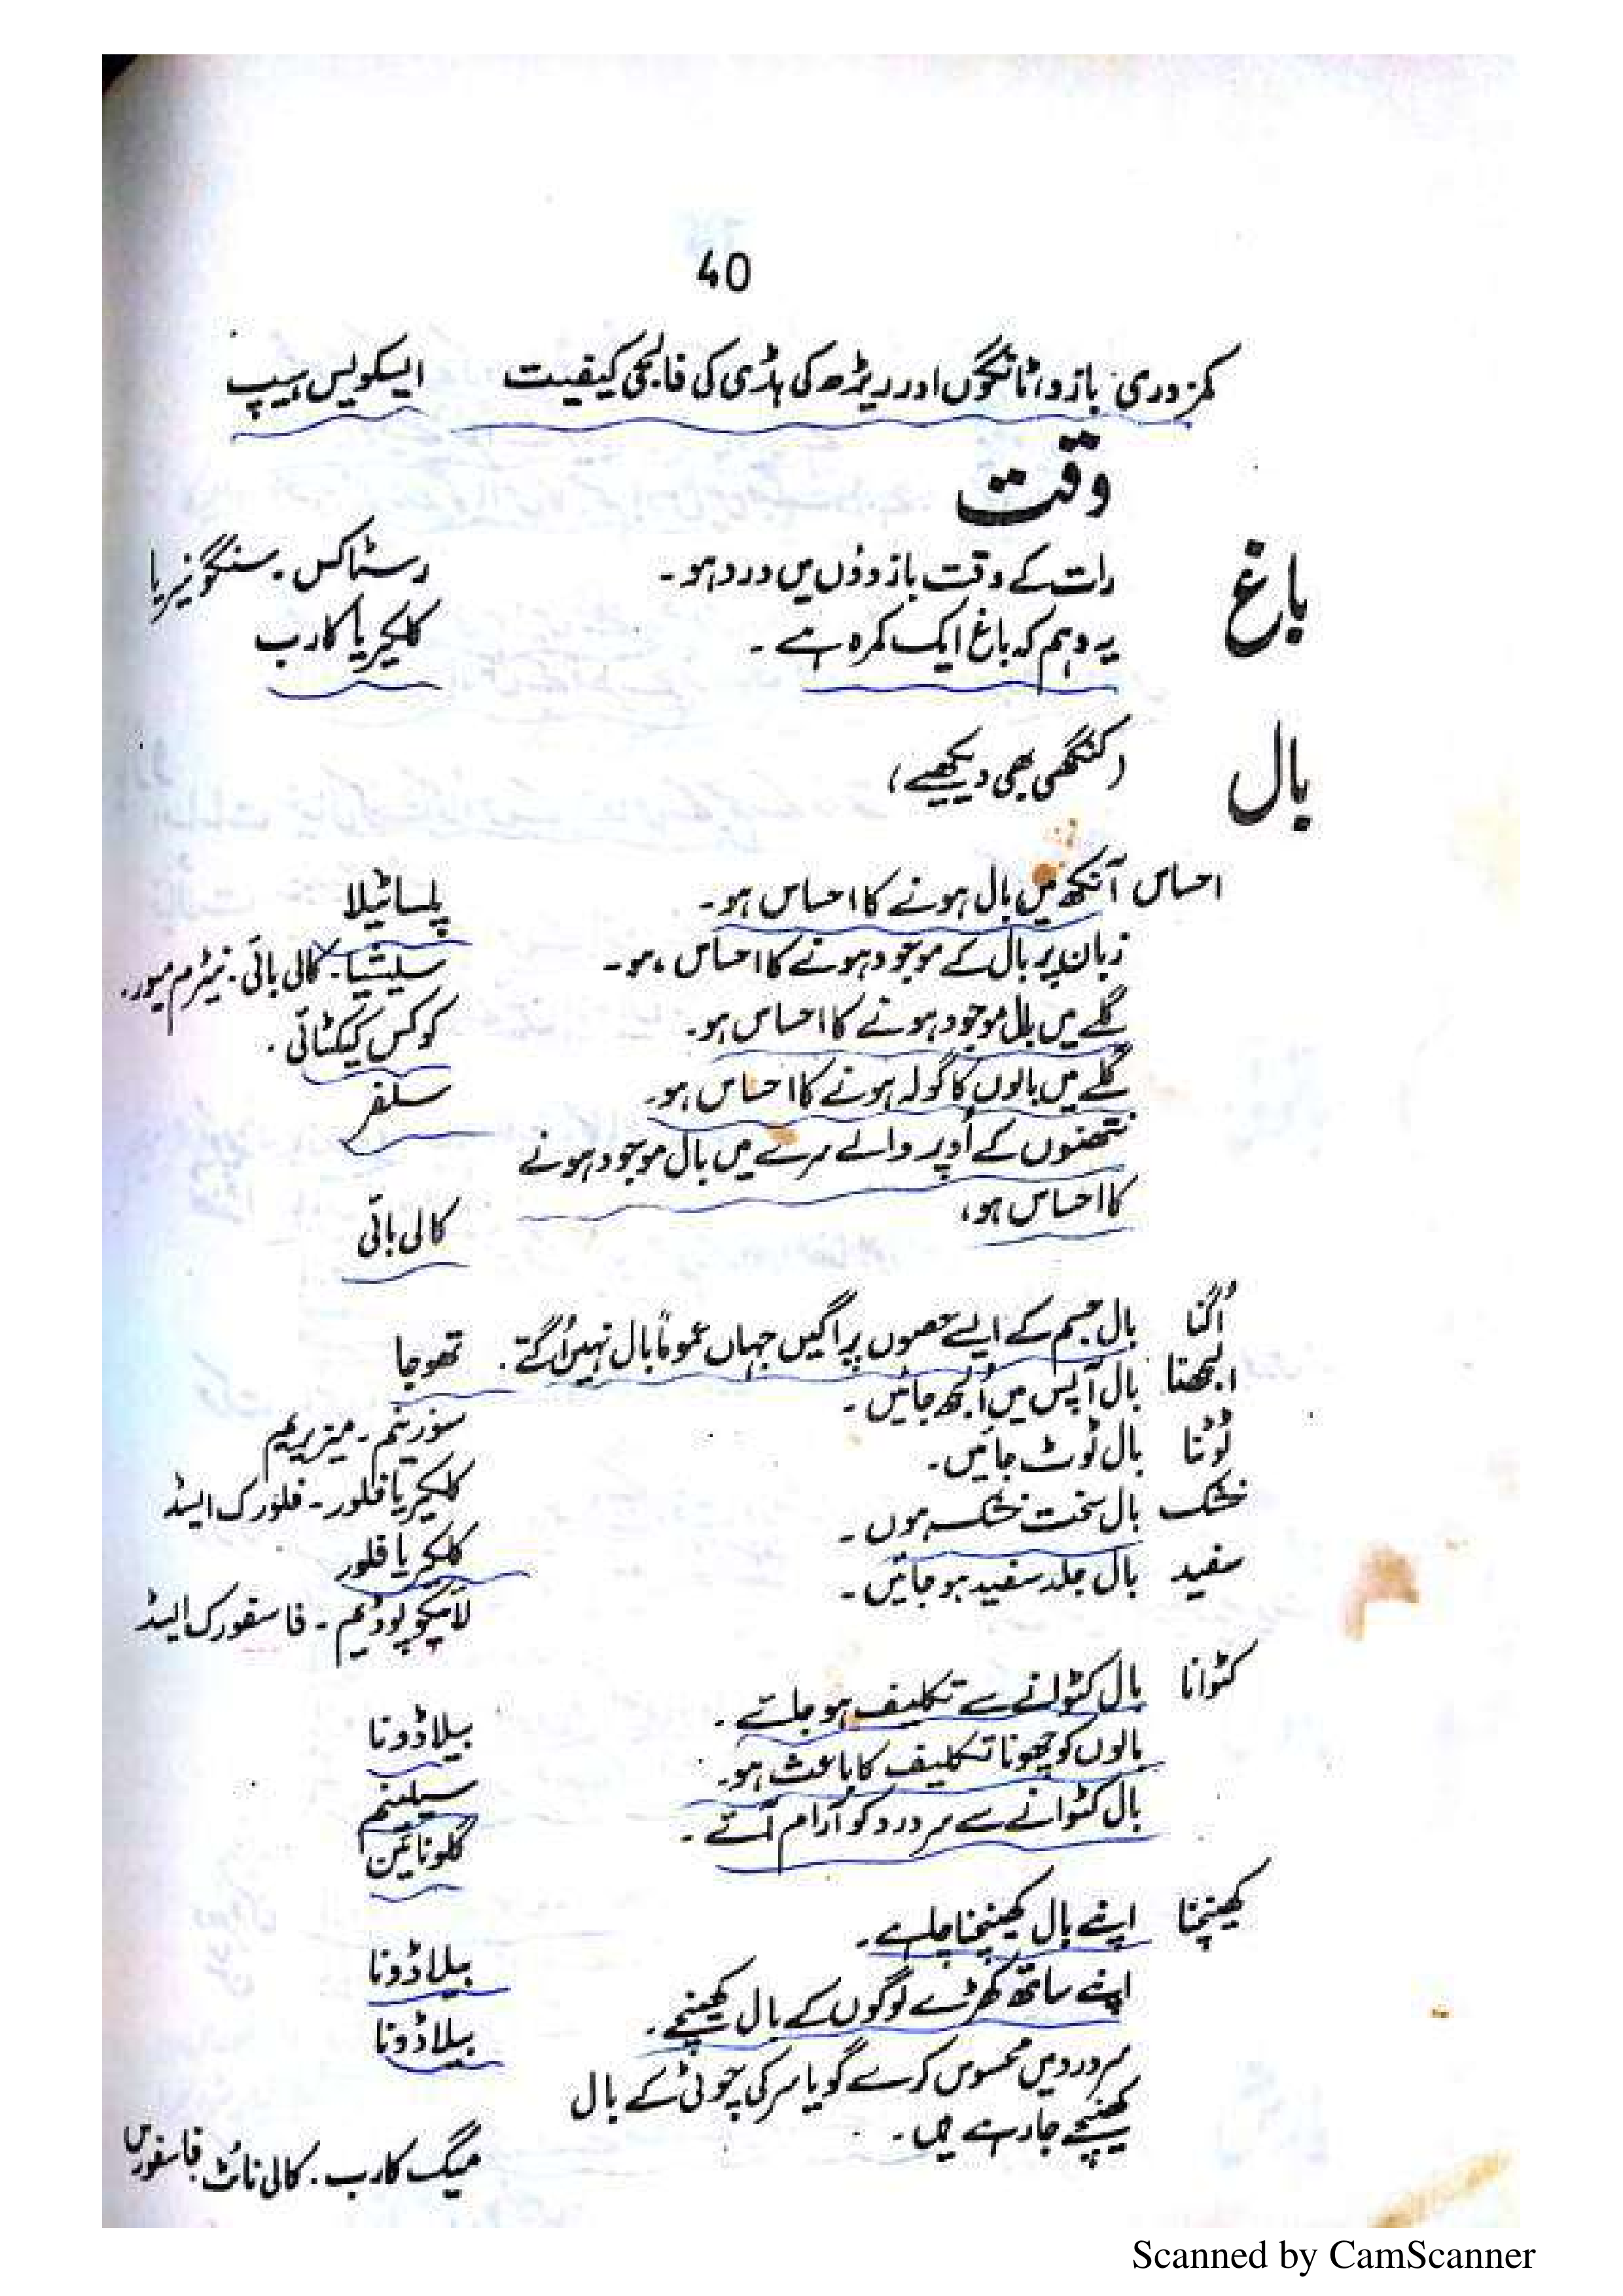 40
کمزوری: بازو، ٹانگوں اور ریڑھ کی ہڈی کی فالجی کیفیت ایسکولس ہیپ
وقت
رات کے وقت بازوؤں میں درد ہو۔ رسٹاکس۔ سنگونیریا
باغ یہ وہم کہ باغ ایک کمرہ ہے۔ کلکیریا کارب
بال (کنگھی بھی دیکھیے)
احساس آنکھ میں بال ہونے کا احساس ہو۔ پلساٹیلا
زبان پر بال کے موجود ہونے کا احساس ہو۔ سلیشیا۔ کالی بائی۔ نیٹرم میور۔
گلے میں بال موجود ہونے کا احساس ہو۔ کوکس کیکٹائی۔
گلے میں بالوں کا گولہ ہونے کا احساس ہو۔ سلفر
نتھنوں کے اُوپر والے سرے میں بال موجود ہونے
کا احساس ہو، کالی بائی
اُگنا بال جسم کے ایسے حصوں پر اگیں جہاں عموماً بال نہیں اُگتے۔ تھوجا
اُلجھنا بال آپس میں اُلجھ جائیں۔ سورینم۔ میزیریم
ٹوٹنا بال ٹوٹ جائیں۔ کلکیریا فلور۔ فلورک ایسڈ
خشک بال سخت خشک ہوں۔ کلکیریا فلور
سفید بال جلد سفید ہو جائیں۔ لائیکوپوڈیم۔ فاسفورک ایسڈ
کٹوانا بال کٹوانے سے تکلیف ہو جائے۔ بیلاڈونا
بالوں کو چھونا تکلیف کا باعث ہو۔ سیلینیم
بال کٹوانے سے سر درد کو آرام آئے۔ گلونائین
کھینچنا اپنے بال کھینچنا چاہے۔ بیلاڈونا
اپنے ساتھ کھڑے لوگوں کے بال کھینچے۔ بیلاڈونا
سر درد میں محسوس کرے گویا سر کی چوٹی کے بال
کھینچے جا رہے ہیں۔ میگ کارب۔ کالی نائٹ فاسفورس
Scanned by CamScanner